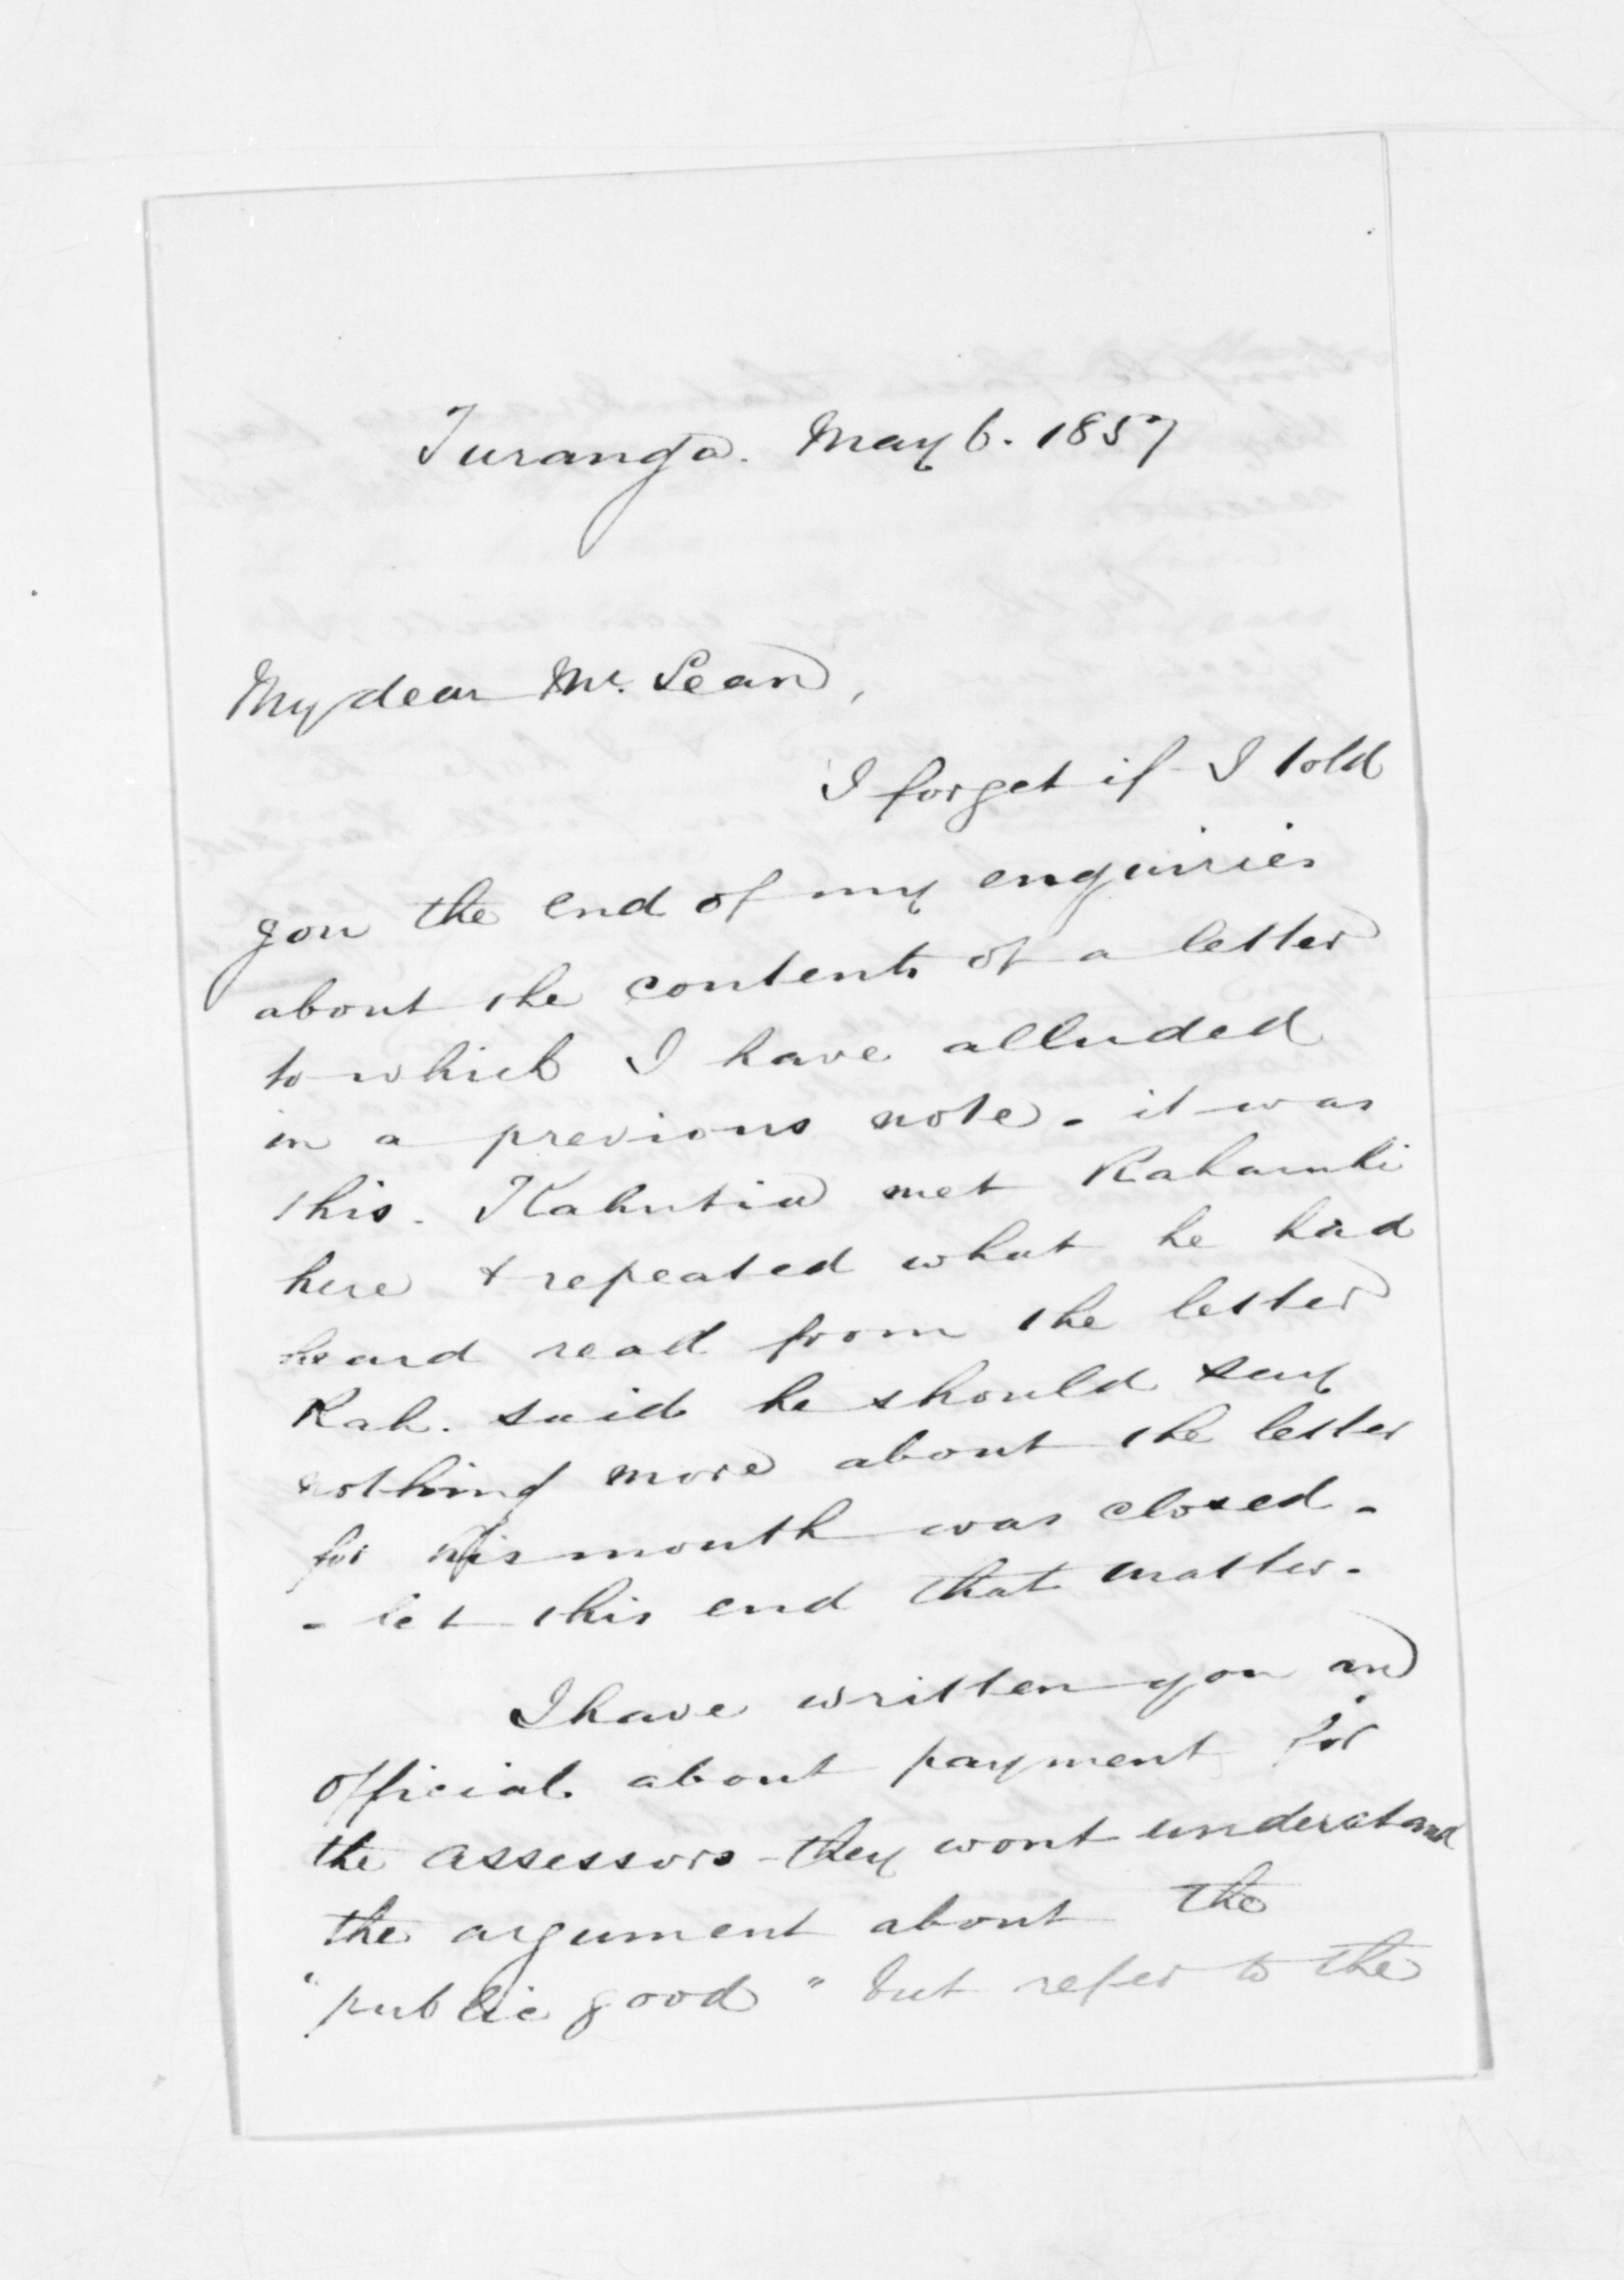 Turanga. May 6. 1857
My dear Mc. Lean,
I forget if I told
you the end of my enquiries
about the contents of a letter
to which I have alluded
in a previous note - it was
this. Kahutia met Raharuhi
here & repeated what he had
heard read from the letter
Rah. said he should say
nothing more about the letter
for his mouth was closed -
- let this end that matter.
I have written you an
official about payment for
the assessors - they wont understand
the argument about the
"public good" but refer to the